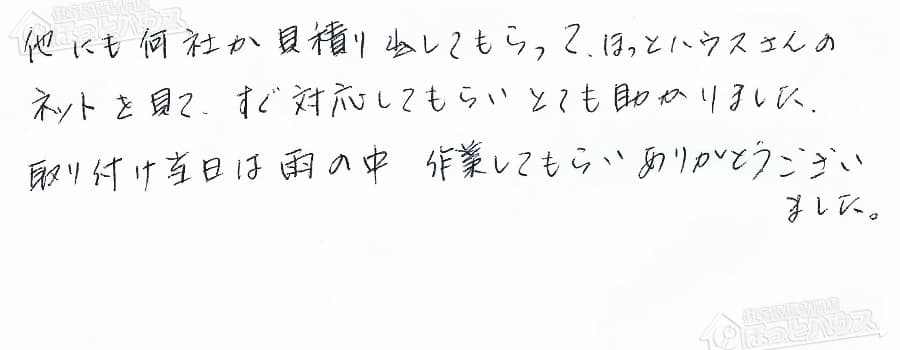 他にも何社か見積り出してもらって、ほっとハウスさんの
ネットを見て、すぐ対応してもらいとても助かりました。
取り付け当日は雨の中 作業してもらいありがとうござい
ました。
住宅設備専門店
ほっとハウス
住宅設備専門店
ほっとハウス